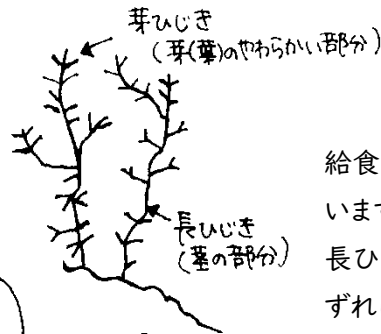 芽ひじき
(芽(葉)のやわらかい部分)
長ひじき
(茎の部分)
給食
います
長ひ
ずれ